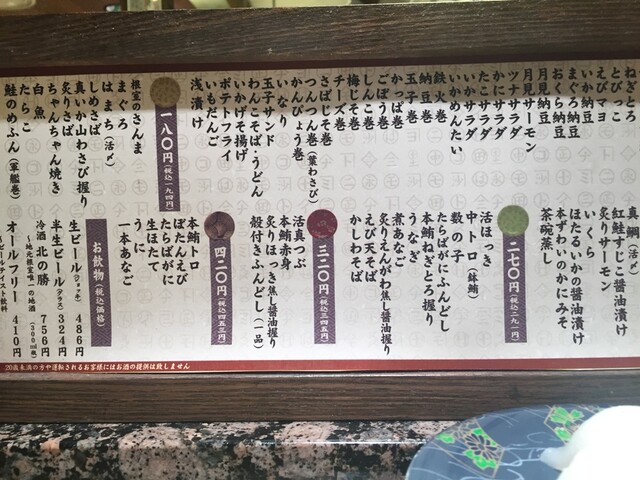 ねぎとろ
とびっこ
えびマヨ
いか納豆
まぐろ納豆
おくら納豆
月見納豆
月見サーモン
ツナサラダ
かにサラダ
たこサラダ
いかサラダ
いかめんたい
鉄火巻
納豆巻
玉子巻
かっぱ巻
ごぼう巻
しんこ巻
梅じそ巻
チーズ巻
さばじそ巻
つんつん巻(葉わさび)
かんぴょう巻
いなり
玉子サンド
わんこそば・うどん
いかげそ揚げ
ポテトフライ
いもだんご
浅漬け
一八〇円(税込一九四円)
根室のさんま
まぐろ
はまち(活〆)
しめさば
真いか山わさび握り
炙りさば
ちゃんちゃん焼き
白魚
たらこ
鮭のめふん(軍艦巻)
真鯛(活〆)
炙りサーモン
紅鮭すじこ醤油漬け
いくら
ほたるいかの醤油漬け
本ずわいのかにみそ
茶碗蒸し
二七〇円(税込二九一円)
活ほっき
中トロ(鉢鮪)
数の子
たらばがにふんどし
本鮪ねぎとろ握り
うなぎ
煮あなご
炙りえんがわ焦し醤油握り
えび天そば
かしわそば
三二〇円(税込三四五円)
活真つぶ
本鮪赤身
炙りほっき焦し醤油握り
殻付きふんどし(一品)
四二〇円(税込四五三円)
本鮪トロ
ぼたんえび
たらばがに
生ほたて
うに
一本あなご
お飲物(税込価格)
生ビール(ジョッキ) 486円
半生ビール(グラス) 324円
冷酒 北の勝 756円
~地元根室唯一の地酒(300ml瓶)
オールフリー 410円
~ビールテイスト飲料
20歳未満の方や運転されるお客様にはお酒の提供は致しません